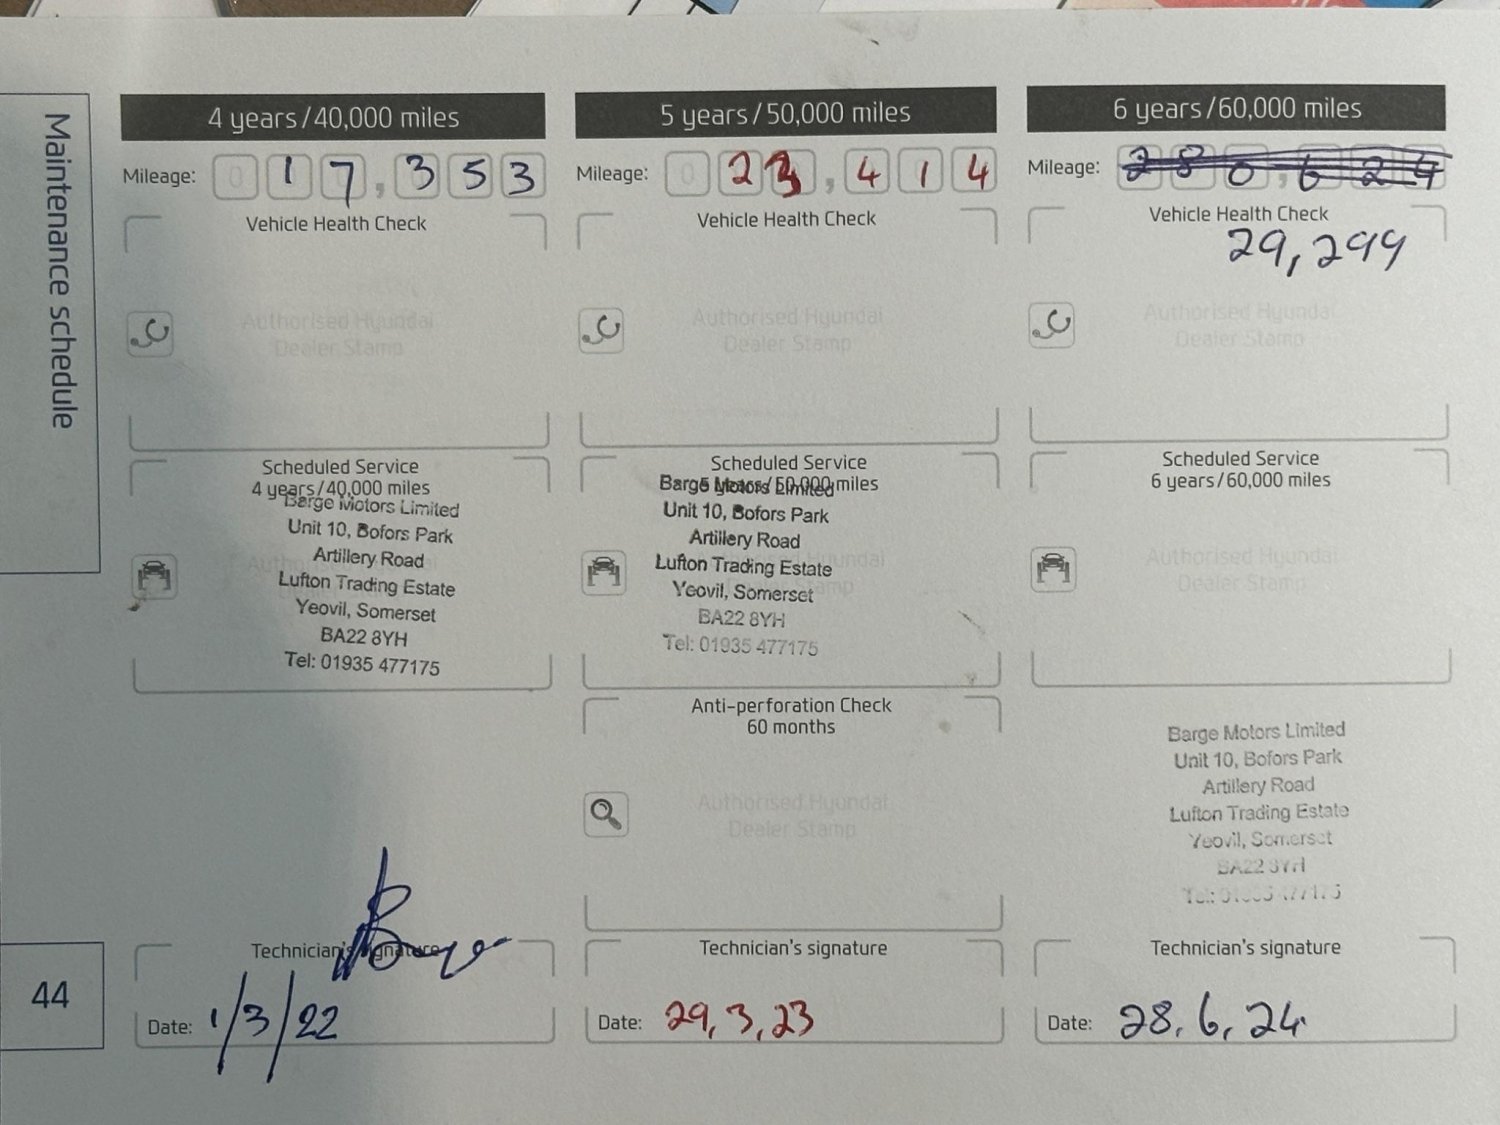 Maintenance schedule
44
4 years/40,000 miles
Mileage: 0 17,353
Vehicle Health Check
Authorised Hyundai
Dealer Stamp
Scheduled Service
4 years/40,000 miles
Barge Motors Limited
Unit 10, Bofors Park
Artillery Road
Lufton Trading Estate
Yeovil, Somerset
BA22 8YH
Tel: 01935 477175
Technician's signature
Date: 1/3/22
5 years/50,000 miles
Mileage: 0 23,414
Vehicle Health Check
Authorised Hyundai
Dealer Stamp
Scheduled Service
5 years/50,000 miles
Barge Motors Limited
Unit 10, Bofors Park
Artillery Road
Lufton Trading Estate
Yeovil, Somerset
BA22 8YH
Tel: 01935 477175
Anti-perforation Check
60 months
Authorised Hyundai
Dealer Stamp
Technician's signature
Date: 29,3,23
6 years/60,000 miles
Mileage: 280,624
Vehicle Health Check
29,299
Authorised Hyundai
Dealer Stamp
Scheduled Service
6 years/60,000 miles
Authorised Hyundai
Dealer Stamp
Barge Motors Limited
Unit 10, Bofors Park
Artillery Road
Lufton Trading Estate
Yeovil, Somerset
BA22 8YH
Technician's signature
Date: 28.6,24